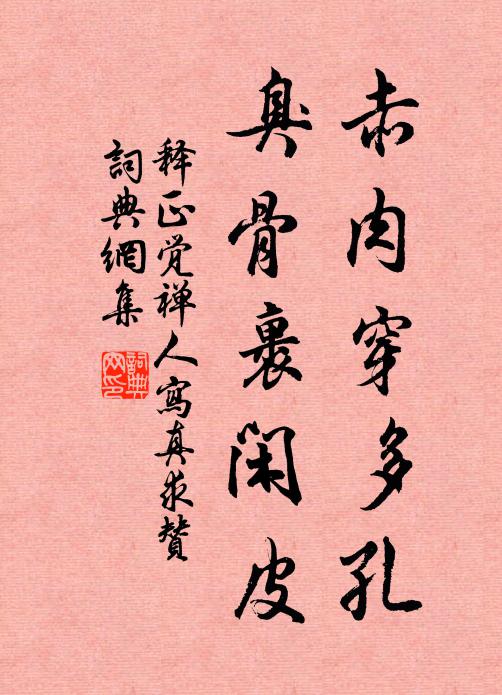 赤肉穿多孔
臭骨裹闲皮
释正觉禅人寫真求赞
詞典網集
詞典网印